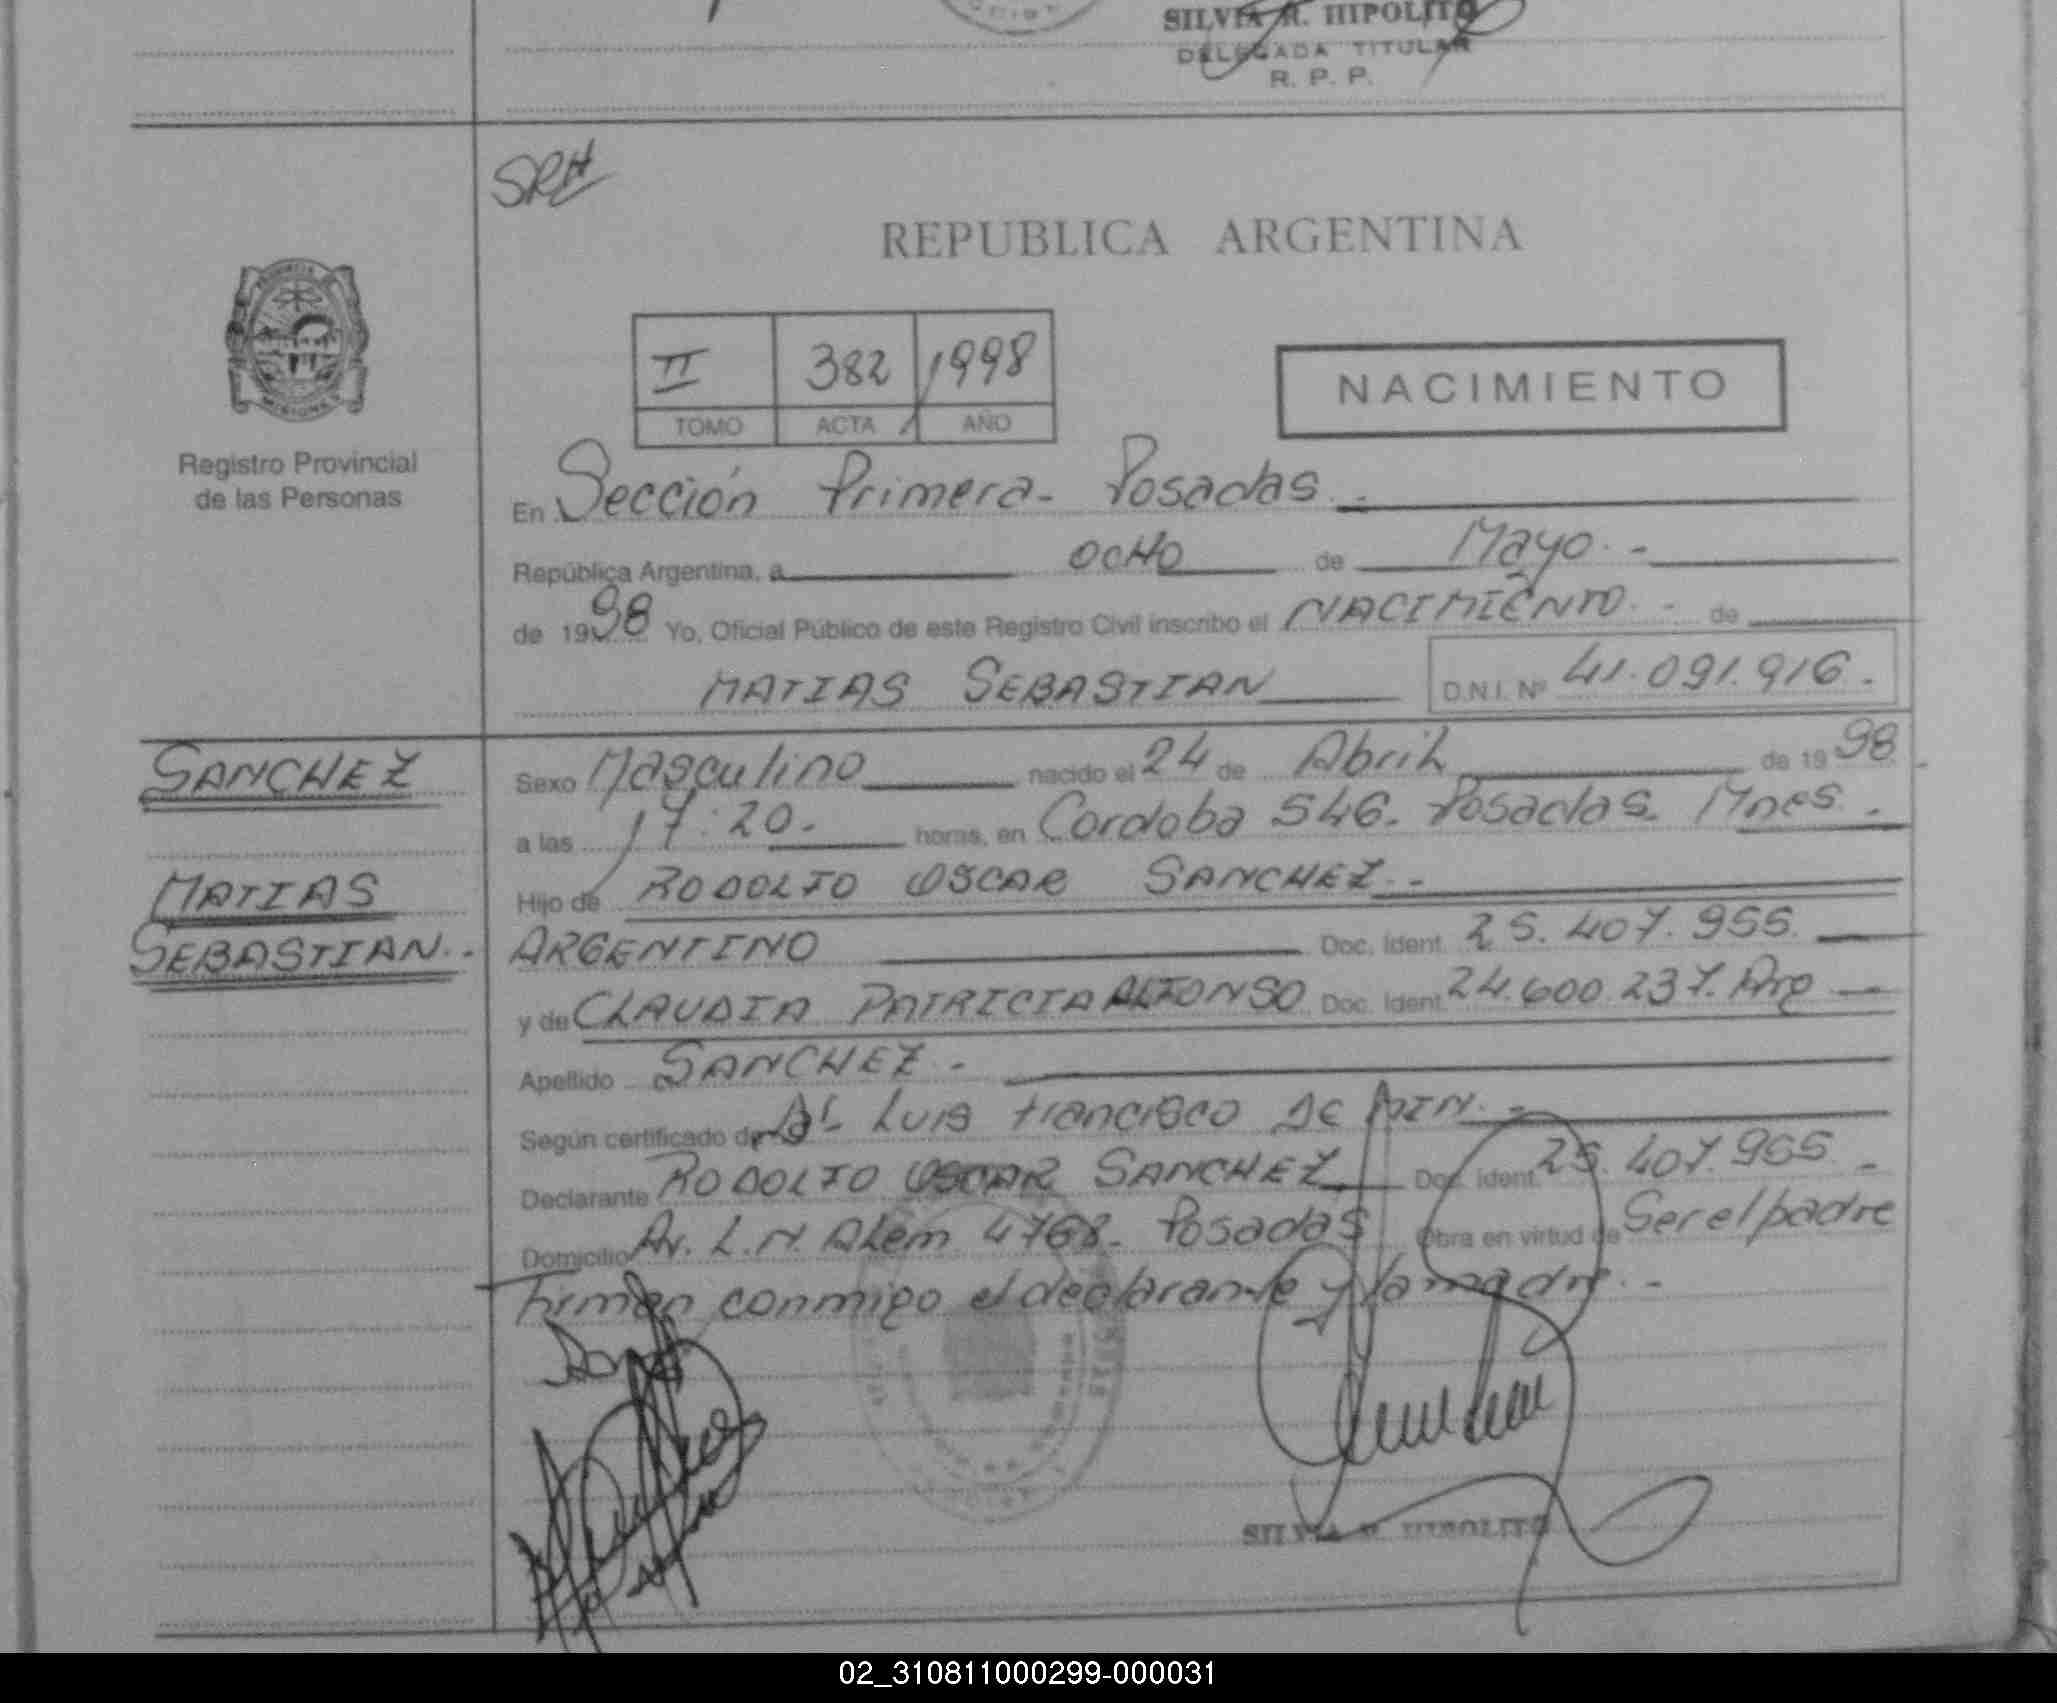 SILVIA R. HIPOLITO
DELEGADA TITULAR
R. P. P.
SRH
REPUBLICA ARGENTINA
II 382 1998
TOMO ACTA AÑO
NACIMIENTO
MISIONES
Registro Provincial
de las Personas
En Sección Primera - Posadas. -
República Argentina, a ocHo de Mayo. -
de 1998 Yo, Oficial Público de este Registro Civil inscribo el NACIMIENTO. - de
MATIAS SEBASTIAN D.N.I. Nº 41.091.916. -
SANCHEZ
MATIAS
SEBASTIAN. -
Sexo Masculino nacido el 24 de Abril de 1998
a las 17:20. horas, en Cordoba 546. Posadas. Mnes. -
Hijo de RODOLFO OSCAR SANCHEZ. -
ARGENTINO Doc. Ident. 25.407.955.
y de CLAUDIA PATRICIA ALFONSO Doc. Ident. 24.600.237. Arg
Apellido SANCHEZ. -
Según certificado de Luis Francisco
Declarante RODOLFO OSCAR SANCHEZ Doc. Ident. 25.407.955. -
Domicilio Av. L.N. Alem 4768. Posadas Obra en virtud de Ser el padre
Firman conmigo el declarante y la madre. -
SILVIA R. HIPOLITO
02_310811000299-000031